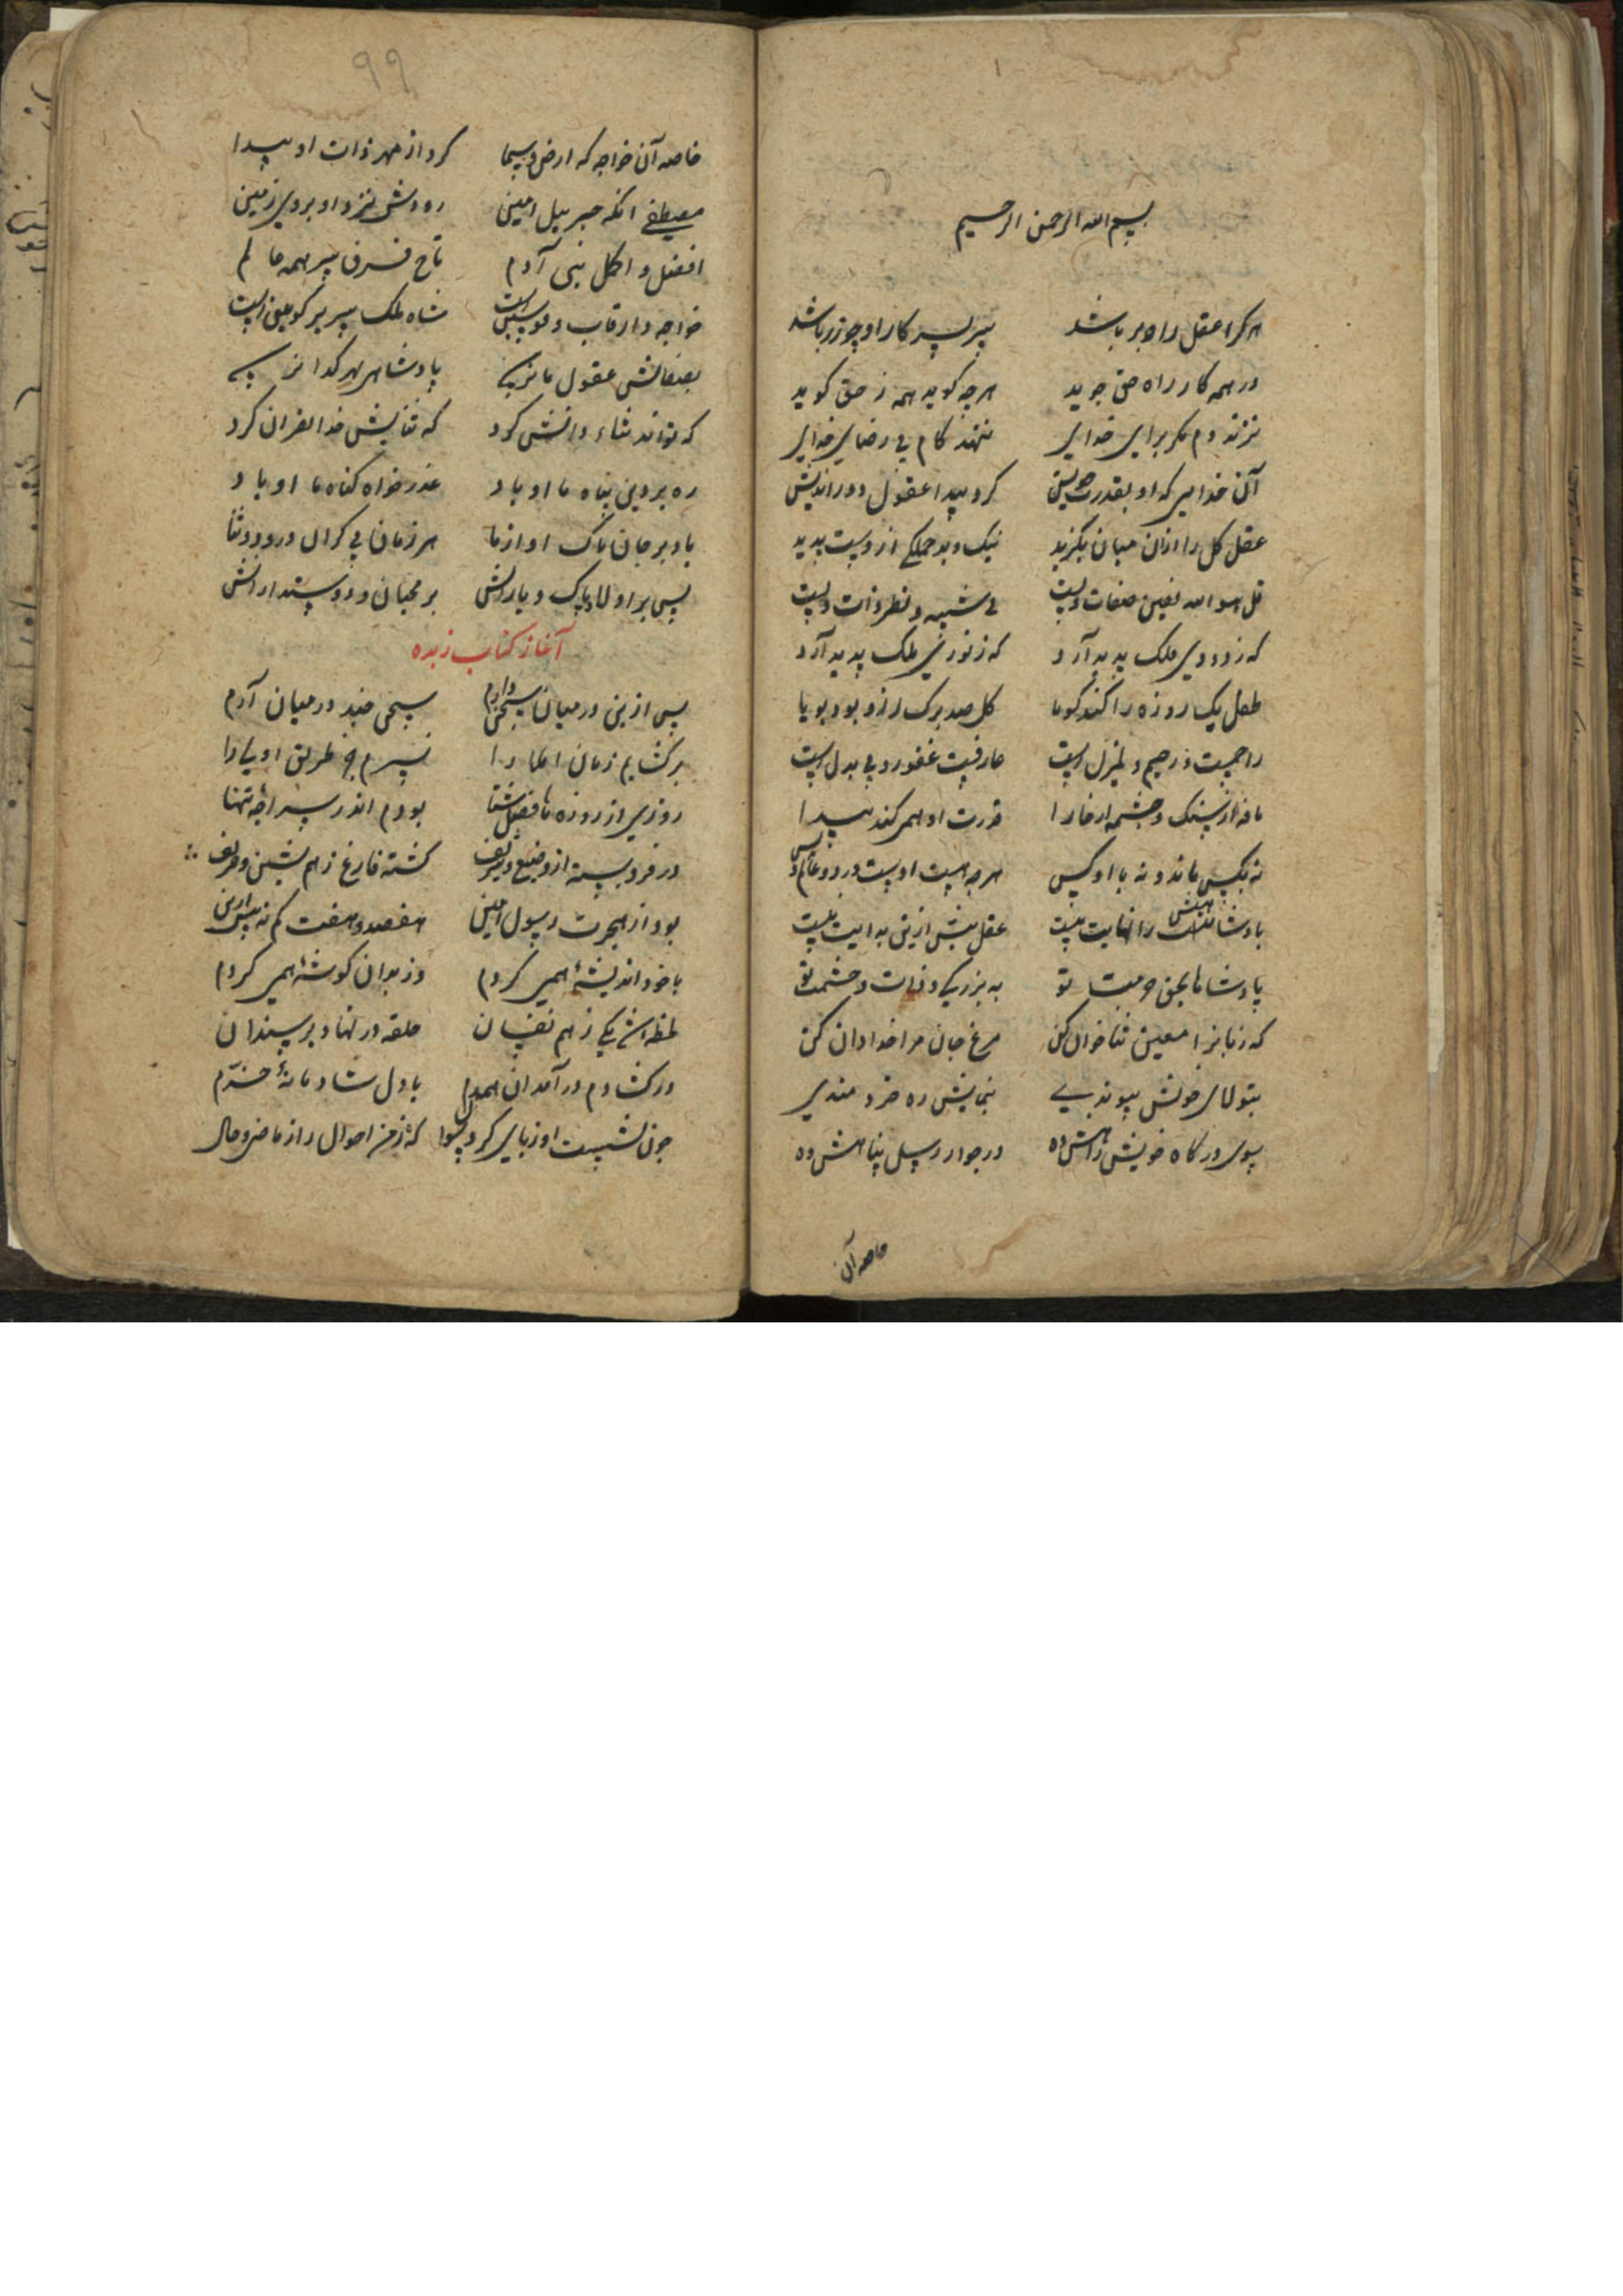 بسم الله الرحمن الرحیم
هر کرا عقل راهبر باشد سر بسر کار او چو زر باشد
در همه کار راه حق جوید هرچه کوید همه ز حق کوید
نزند دم مکر برای خدای ننهد کام بی رضای خدای
آن خدایی که او بقدرت خویش کرد پیدا عقول دوراندیش
عقل کل را ازان میان بکزید نیک و بد جملکی ازوست بدید
قل هو الله صفات و ذات
که ز دودی فلک پدید آرد که ز نوری ملک پدید آرد
طفل یک روزه را کند کویا کل صد برک ازو بود بویا
راحمیست و رحیم و لم یزل است عارفیست غفور و بی بدل است
ناقه از سنک و چشمه از خارا قدرت او همی کند پیدا
نه بکس ماند و نه با او کس هرچه هست اوست در دو عالم و بس
بادشاهیش را نهایت نیست عقل بیش ازین بدایت نیست
پادشاها بحق حرمت تو به بزرکی و ذات و حشمت تو
که زبانرا معین ثناخوان کن مرغ جان مرا خدادان کن
بتولای خویش پیوندی بنمایش ره خردمندی
سوی درکاه خویش راهش ده در جوار رسل پناهش ده
خاصه آن
۹۹
خاصه آن خواجه که ارض و سما کرد از مهر ذات او پیدا
مصطفی انکه جبریل امین بروی زمین
افضل و اکمل بنی آدم تاج فرق سر همه عالم
خواجه و قاب قوسین است شاه ملک سریر کونین است
بصفاتش عقول ما نرسد پادشاهی بهر کدا نرسد
که تواند ثناء ذاتش کرد که ثنایش خدا بقران کرد
ره بر دین پناه ما او باد عذر خواه کناه ما او باد
باد بر جان پاک او از ما هر زمان بی کران درود و ثنا
پس بر اولاد پاک و یارانش بر محبان و دوستدارانش
آغاز کتاب زبده
پس ازین در میان سخن دارم سخنی چند در میان آرم
برکشایم زمان اعلا را نسپرم جز طریق اولی را
روزی از روزهاء فصل شتا بودم اندر سراچه تنها
در فرو بسته از وضیع و شریف کشته فارغ ز هم نشین و حریف
بود از هجرت رسول امین هفصد و هفت کم نه بیش ازین
با خرد اندیشه همی کردم وز بدان کوشه همی کردم
لحظه شد یکی ز هم نفسان حلقه در نهاد بر سندان
در کشادم در آمد ان همدم با دل شادمانه خرم
چون نشست او زبان کرد سوال کز احوال راز ماضی و حال